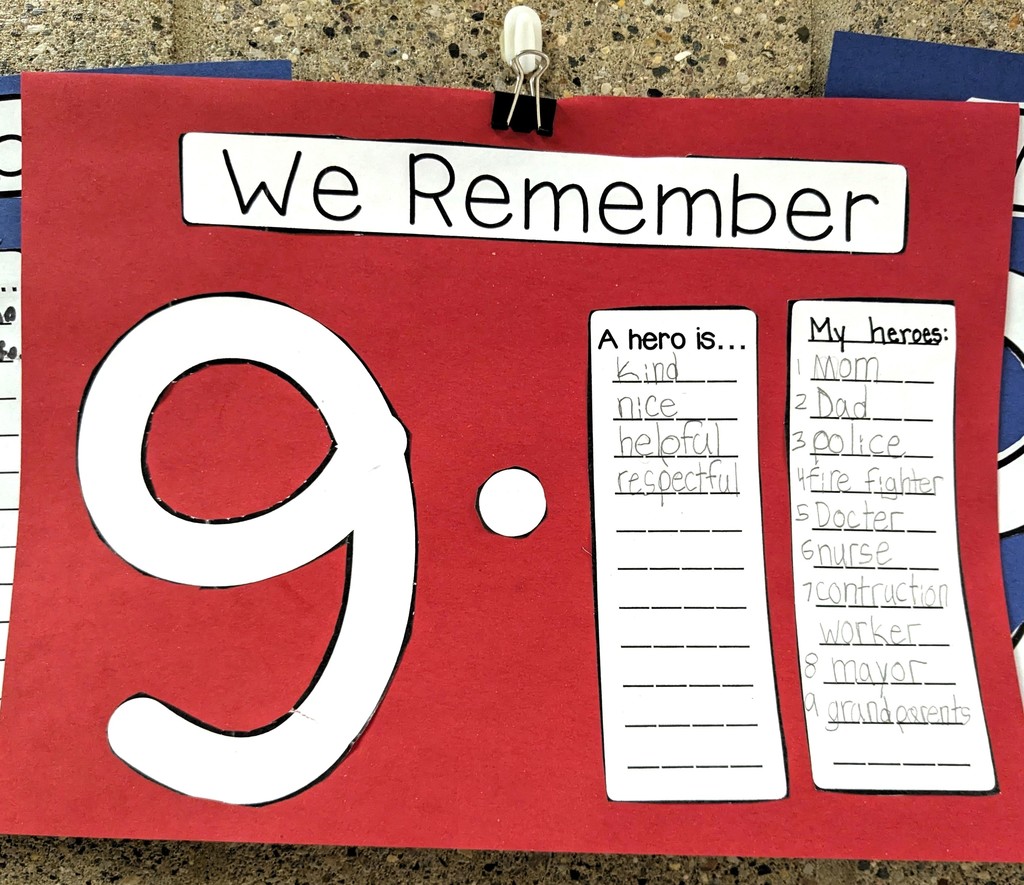 We Remember
9 • 11
A hero is...
Kind
nice
helpful
respectful
My heroes:
1 Mom
2 Dad
3 police
4 fire fighter
5 Docter
6 nurse
7 contruction
worker
8 mayor
9 grandparents